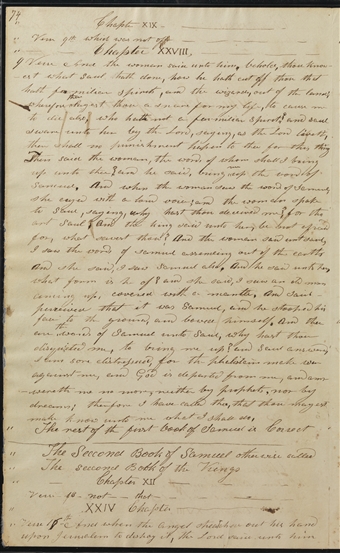 74
Chapter XIX
" Verse 9th which was not off
Chapter XXVIII,
9 Verse And the woman said unto him, behold, thou know-
est what Saul hath done, how he hath cut off those that
hath familiar spirits, and the wizards, out of the land;
wherefore layest thou a snare for my life, to cause me
to die also who hath not a familiar spirit; and saul
swear unto her by the Lord, saying, as the Lord liveth,
there shall no punishment happen to thee for this thing
Then said the woman, the word of whom shall I bring
up unto thee; and he said, bring up the word of
Samuel. And when the woman saw the word of Samuel,
she cryed with a loud voice; and the woman spake
to Saul, saying, why hast thou deceived me; for thou
art Saul; And the king said unto her, be not afraid
for, what sawest thou; And the woman said unto Saul,
I saw the word of Samuel ascending out of the earth,
And she said, I saw Samuel also. And he said unto her,
what form is he of; and she said, I saw an old man
coming up, covered with a mantle, And Saul
perceived that it was Samuel, and he stooped his
face to the ground, and bowed himself. And these
are the words of Samuel unto Saul, why hast thou
disquieted me, to bring me up; and Saul answered
I am sore distressed, for the philistines make war
against me, and God is departed from me, and an-
swereth me no more, neither by prophets, nor by
dreams; therefore I have called thee, that thou mayest
make known unto me what I shall do,
The rest of the first book of Samuel is Correct
" The Second Book of Samuel otherwise called
" The second Book of the Kings
" Chapter XII
" Verse
XXIV Chapter
" Verse 16th And when the angel stretched out his hand
upon Jerusalem to destroy it, the Lord said unto him